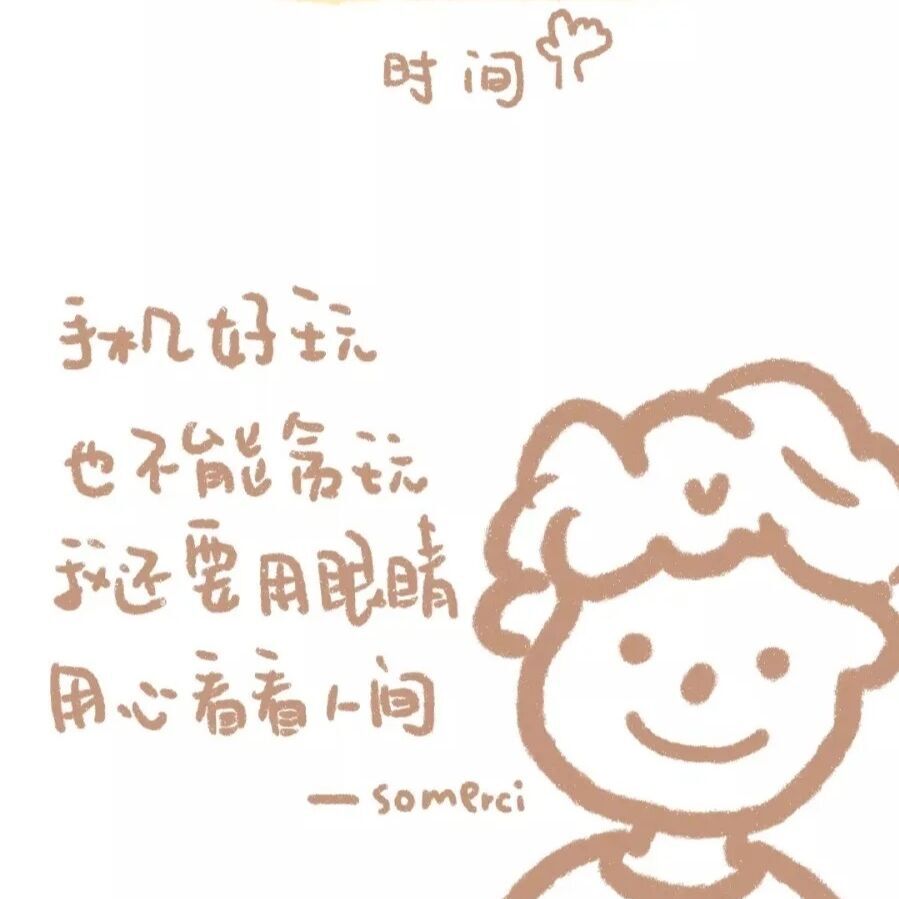 时间
手机好玩
也不能贪玩
我还要用眼睛
用心看看人间
—somerci